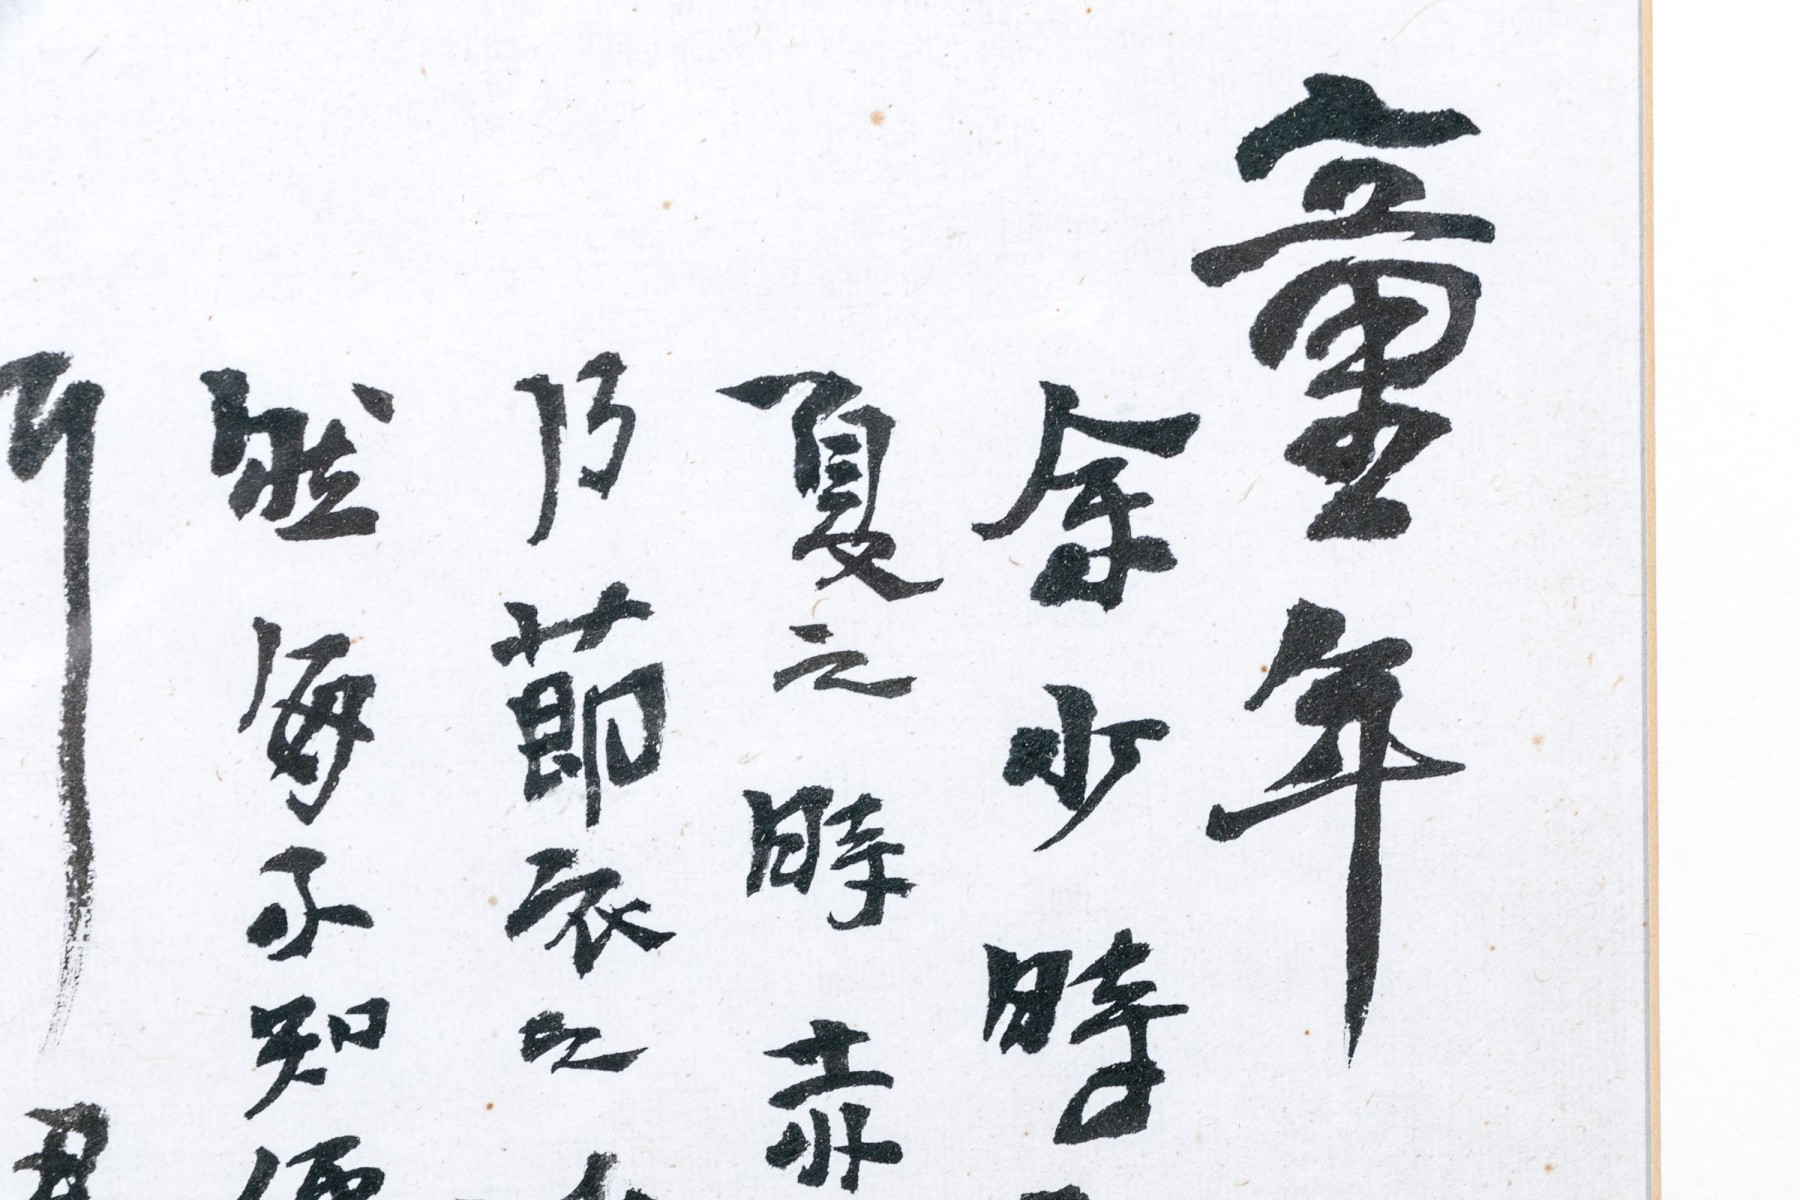 童年
余少時
夏之時赤
乃節衣之
然每不知